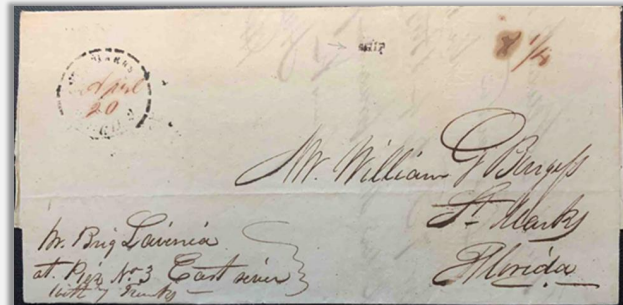 ST. MARKS
April
20
SHIP
Mr. William G Burgess
St. Marks
Florida
Pr. Brig Lavinia
at Pier No. 3 East river
with 7 Trunks